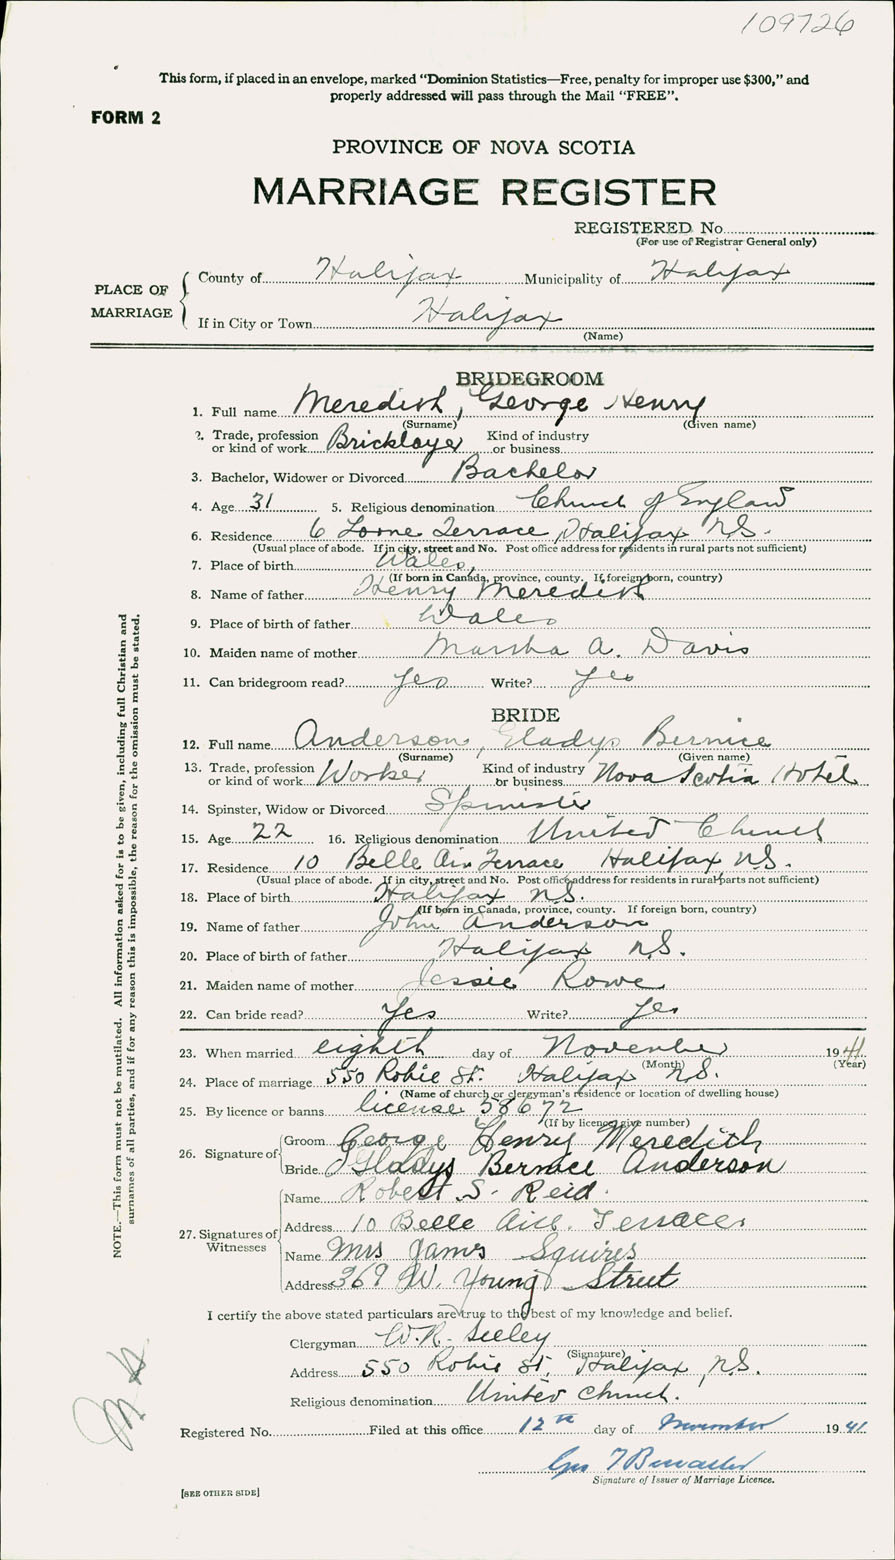 109726
This form, if placed in an envelope, marked “Dominion Statistics—Free, penalty for improper use $300,” and
properly addressed will pass through the Mail “FREE”.
FORM 2
PROVINCE OF NOVA SCOTIA
MARRIAGE REGISTER
REGISTERED No.
(For use of Registrar General only)
PLACE OF MARRIAGE
County of Halifax Municipality of Halifax
If in City or Town Halifax
(Name)
BRIDEGROOM
1. Full name Meredith, George Henry
(Surname) (Given name)
2. Trade, profession or kind of work Bricklayer Kind of industry or business
3. Bachelor, Widower or Divorced Bachelor
4. Age 31 5. Religious denomination Church of England
6. Residence 6 Lorne Terrace, Halifax N.S.
(Usual place of abode. If in city, street and No. Post office address for residents in rural parts not sufficient)
7. Place of birth Wales,
(If born in Canada, province, county. If foreign born, country)
8. Name of father Henry Meredith
9. Place of birth of father Wales
10. Maiden name of mother Martha A. Davis
11. Can bridegroom read? Yes Write? Yes
BRIDE
12. Full name Anderson, Gladys Bernice
(Surname) (Given name)
13. Trade, profession or kind of work Worker Kind of industry or business Nova Scotia Hotel
14. Spinster, Widow or Divorced Spinster
15. Age 22 16. Religious denomination United Church
17. Residence 10 Belle Air Terrace Halifax N.S.
(Usual place of abode. If in city, street and No. Post office address for residents in rural parts not sufficient)
18. Place of birth Halifax N.S.
(If born in Canada, province, county. If foreign born, country)
19. Name of father John Anderson
20. Place of birth of father Halifax N.S.
21. Maiden name of mother Jessie Rowe
22. Can bride read? Yes Write? Yes
23. When married eighth day of November 1941
(Month) (Year)
24. Place of marriage 550 Robie St. Halifax N.S.
(Name of church or clergyman's residence or location of dwelling house)
25. By licence or banns license 58672
(If by licence, give number)
26. Signature of Groom George Henry Meredith
Bride Gladys Bernice Anderson
27. Signatures of Witnesses
Name Robert S. Reid.
Address 10 Belle Air Terrace
Name Mrs James Squires
Address 369 W. Young Street
I certify the above stated particulars are true to the best of my knowledge and belief.
Clergyman W.R. Seeley
(Signature)
Address 550 Robie St., Halifax, N.S.
Religious denomination United Church.
Registered No. Filed at this office 12th day of November 1941
Geo
Signature of Issuer of Marriage Licence.
[SEE OTHER SIDE]
NOTE.—This form must not be mutilated. All information asked for is to be given, including full Christian and
surnames of all parties, and if for any reason this is impossible, the reason for the omission must be stated.